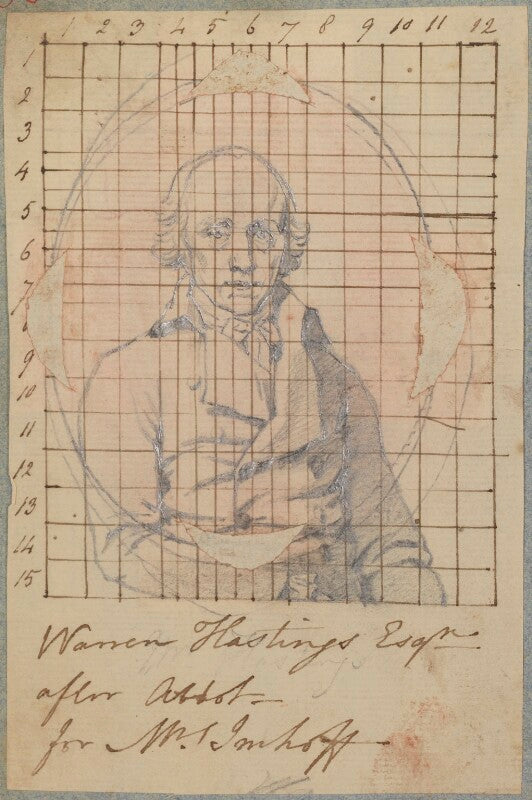 1 2 3 4 5 6 7 8 9 10 11 12
1
2
3
4
5
6
7
8
9
10
11
12
13
14
15
Warren Hastings Esqr.
after Abbot
for Mr. Imhoff